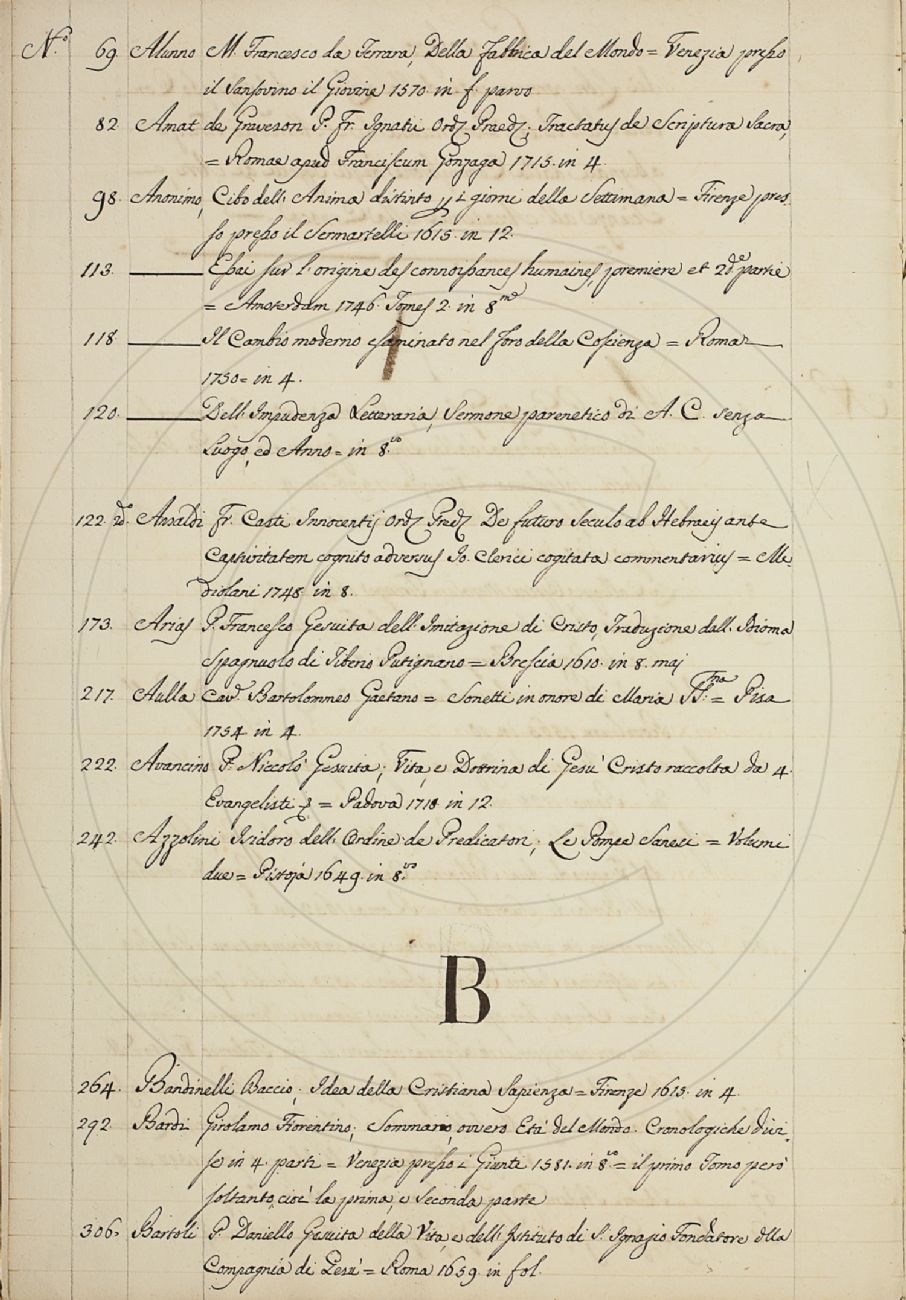 N.º 69. Alunno M. Francesco da Ferrara, Della fabbrica del Mondo = Venezia presso
il Sansovino il Giovine 1570. in f. parvo
82. Amat de Graveson P. Fr. Ignatii Ord. Praed.; Tractatus de Scriptura Sacra,
= Romae apud Franciscum Gonzaga 1715. in 4.
98. Anonimo, Cibo dell'Anima distinto i giorni della Settimana = Firenze pres-
so presso il Sermartelli 1615. in 12.
113. ——— Essai sur l'origine des connoissances humaines, premiere et 2.de partie
= Amsterdam 1746. Tomes 2. in 8.mo
118. ——— Il Cambio moderno esaminato nel foro della Coscienza = Roma
1750 = in 4.
120. ——— Dell'Impudenza Letteraria, Sermone parenetico di A. C. senza
Luogo, ed Anno = in 8.vo
122. 2.º Ansaldi Fr. Casti Innocentij Ord. Pred. De futuro seculo ab Hebraeis ante
Captivitatem cognito adversus Jo. Clerici cogitata commentarius = Me-
diolani 1748. in 8.
173. Arias P. Francesco Gesuita dell'Imitazione di Cristo, Traduzione dall'Idioma
Spagnuolo di Tiberio Putignano = Brescia 1610. in 8. maj
217. Aulla Cav. Bartolommeo Gaetano = Sonetti in onore di Maria SS.ma = Pisa
1754 in 4.
222. Avancino P. Niccolò Gesuita; Vita, e Dottrina di Gesù Cristo raccolta da 4.
Evangelisti = Padova 1718 in 12.
242. Azzolini Isidoro dell'Ordine de Predicatori; Le Pompe Sanesi = Volumi
due = Pistoja 1649. in 8.vo
B
264. Bandinelli Baccio; Idea della Cristiana Sapienza = Firenze 1615. in 4.
292. Bardi Girolamo Fiorentino; Sommario, ovvero Età del Mondo. Cronologiche divi-
se in 4. parti = Venezia presso i Giunti 1581. in 8.vo = il primo Tomo però
soltanto, cioè la prima, e Seconda parte
306. Bartoli P. Daniello Gesuita della Vita, e dell'Istituto di S. Ignazio Fondatore dlla
Compagnia di Gesù = Roma 1659. in fol.